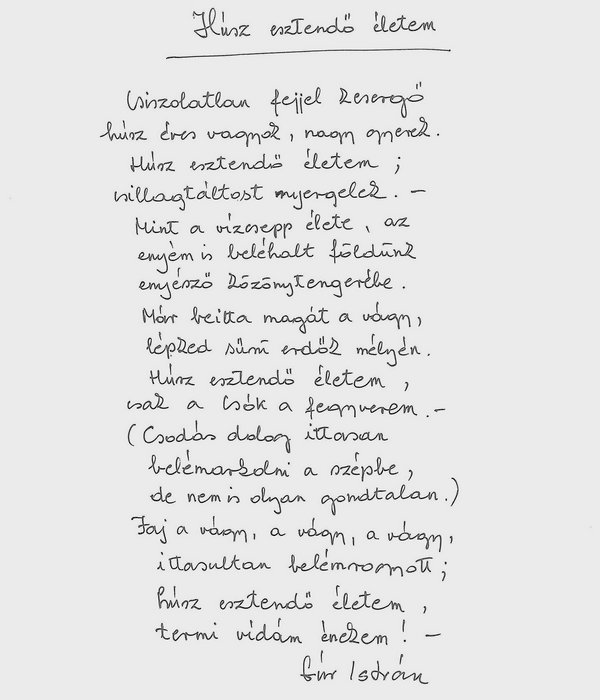 Húsz esztendő életem
Csiszolatlan fejjel kesergő
húsz éves vagyok, nagy gyerek.
Húsz esztendő életem ;
csillagtáltost nyergelek. –
Mint a vízcsepp élete, az
enyém is beléhalt földünk
enyésző közönytengerébe.
Már beitta magát a vágy,
lépked sűrű erdők mélyén.
Húsz esztendő életem ,
csak a Csók a fegyverem. –
(Csodás dolog ittasan
belémarkolni a szépbe,
de nem is olyan gondtalan.)
Faj a vágy, a vágy, a vágy,
ittasultan belémrogyott ;
húsz esztendő életem ,
termi vidám énekem ! –
István